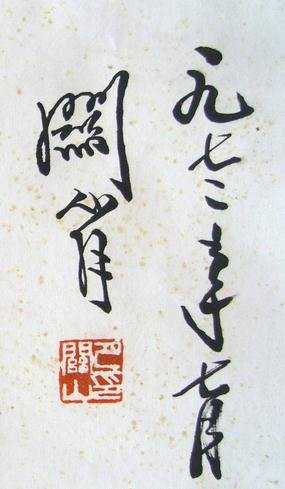 一九七二年七月
關山月
關山月印